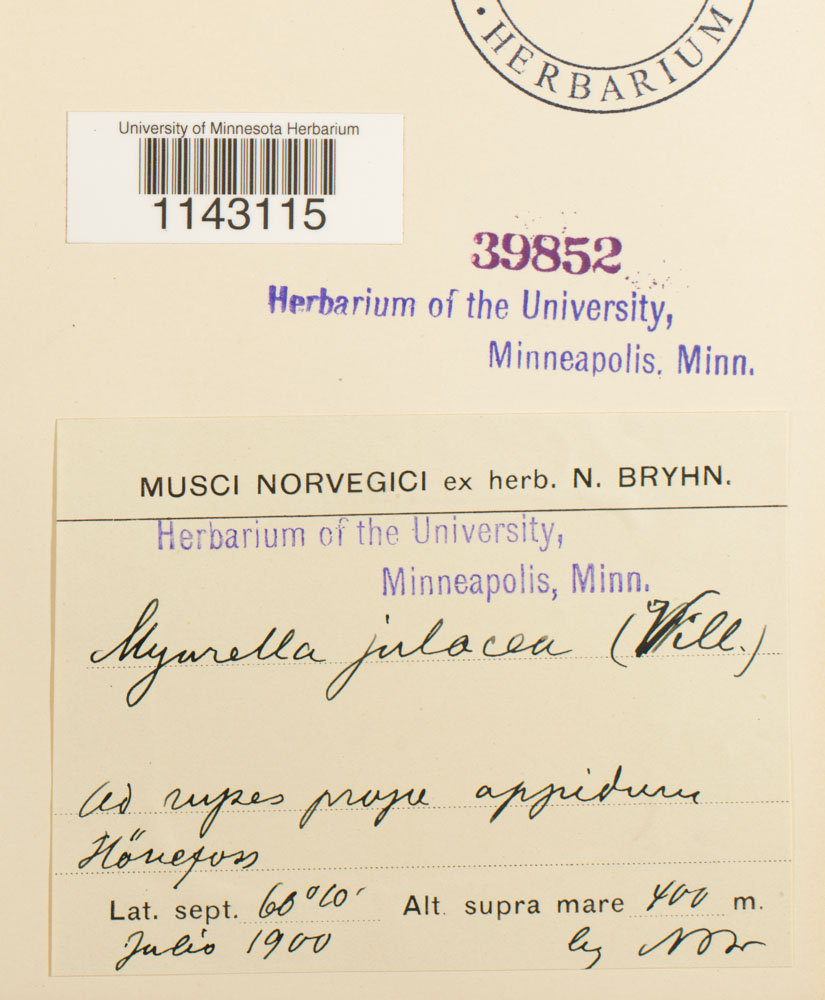 · HERBARIUM
University of Minnesota Herbarium
1143115
39852
Herbarium of the University,
Minneapolis, Minn.
MUSCI NORVEGICI ex herb. N. BRYHN.
Herbarium of the University,
Minneapolis, Minn.
Myurella julacea (Vill.)
Ad rupes prope oppidum
Hönefoss
Lat. sept. 60°10' Alt. supra mare 400 m.
Julio 1900 leg